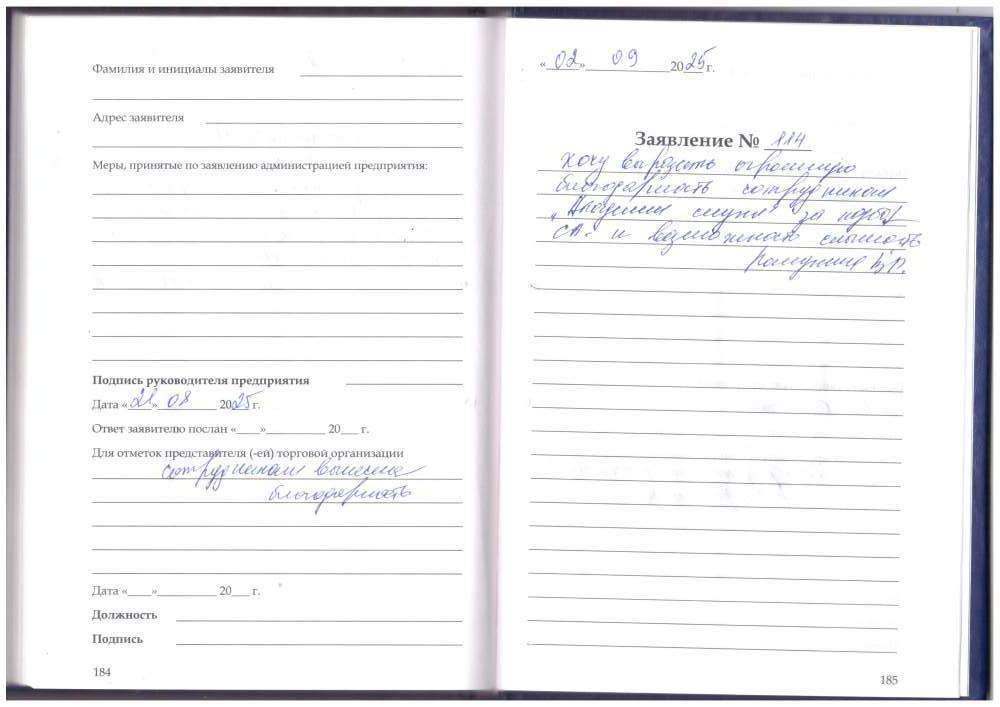 Фамилия и инициалы заявителя
Адрес заявителя
Меры, принятые по заявлению администрацией предприятия:
Подпись руководителя предприятия
Дата «28» 08 2025 г.
Ответ заявителю послан «____»__________ 20___ г.
Для отметок представителя (-ей) торговой организации
сотрудникам вынесена
благодарность
Дата «____»__________ 20___ г.
Должность
Подпись
184
«02» 09 2025 г.
Заявление № 114
Хочу выразить огромную
благодарность сотрудникам
„Академии слуха" за
СА. и возможность слышать
185